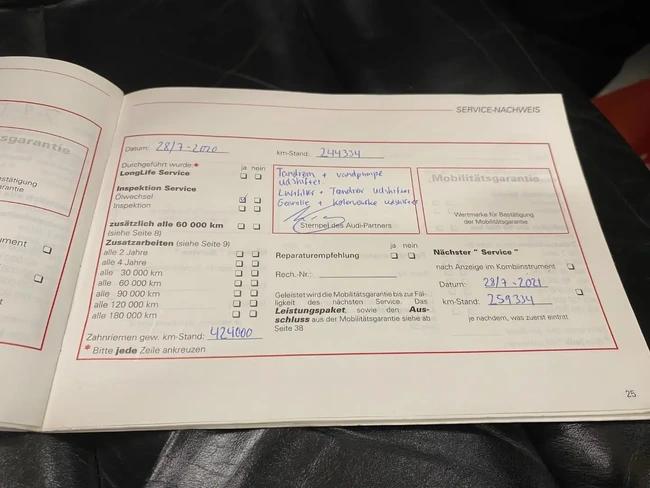 SERVICE-NACHWEIS
sgarantie
stätigung
rantie
ument
Datum: 28/7-2020
km-Stand: 244334
Durchgeführt wurde:*
ja nein
LongLife Service
Inspektion Service
Ölwechsel
Inspektion
zusätzlich alle 60 000 km
(siehe Seite 8)
Zusatzarbeiten (siehe Seite 9)
alle 2 Jahre
alle 4 Jahre
alle 30 000 km
alle 60 000 km
alle 90 000 km
alle 120 000 km
alle 180 000 km
Zahnriemen gew. km-Stand: 424000
* Bitte jede Zeile ankreuzen
Tandrem + vandpumpe
udskiftet
Luftfilter + Tandrem udskiftet
Stempel des Audi-Partners
ja nein
Reparaturempfehlung
Rech.-Nr.:
Geleistet wird die Mobilitätsgarantie bis zur Fäl-
ligkeit des nächsten Service. Das
Leistungspaket, sowie den Aus-
schluss aus der Mobilitätsgarantie siehe ab
Seite 38
„Mobilitätsgarantie
Wertmarke für Bestätigung
der Mobilitätsgarantie
Nächster " Service "
nach Anzeige im Kombiinstrument
Datum: 28/7-2021
km-Stand: 259334
je nachdem, was zuerst eintritt
25